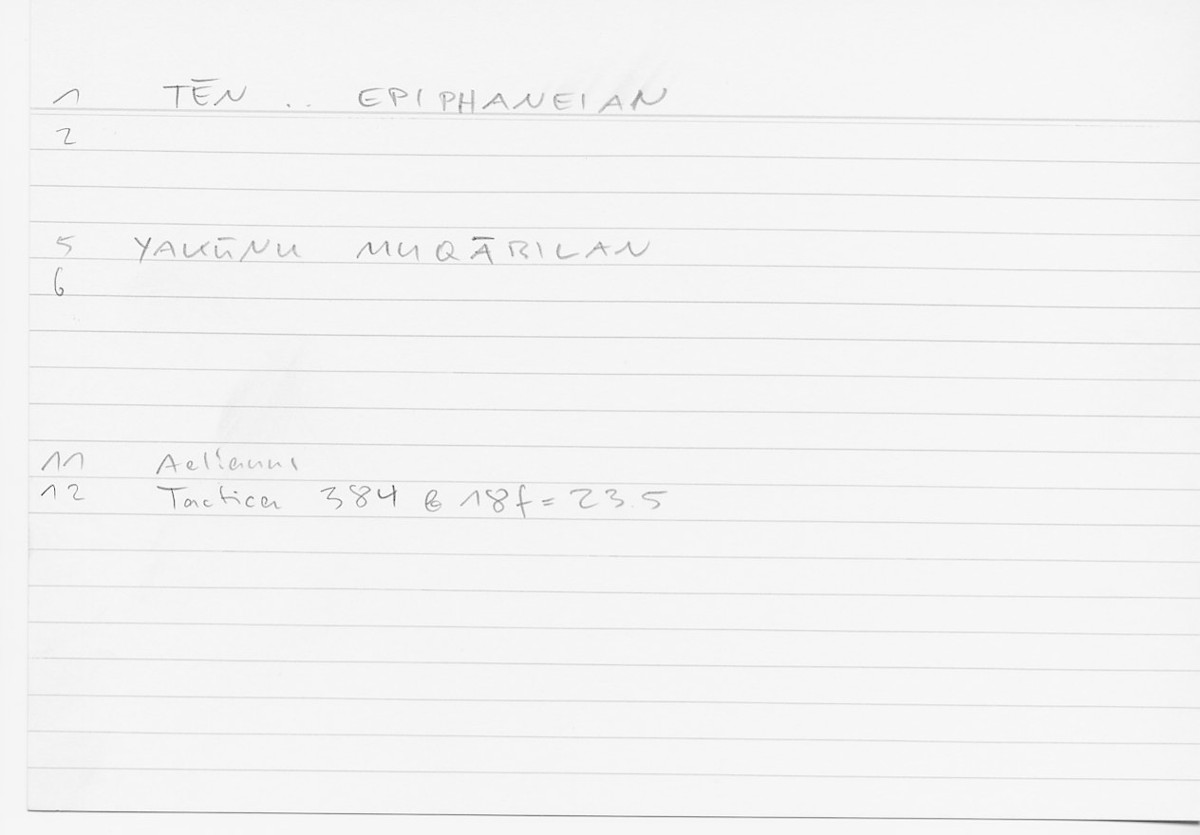 1 TĒN .. EPIPHANEIAN
2
5 YAKŪNU MUQĀBILAN
6
11 Aelianus
12 Tactica 384 b 18f = 23.5